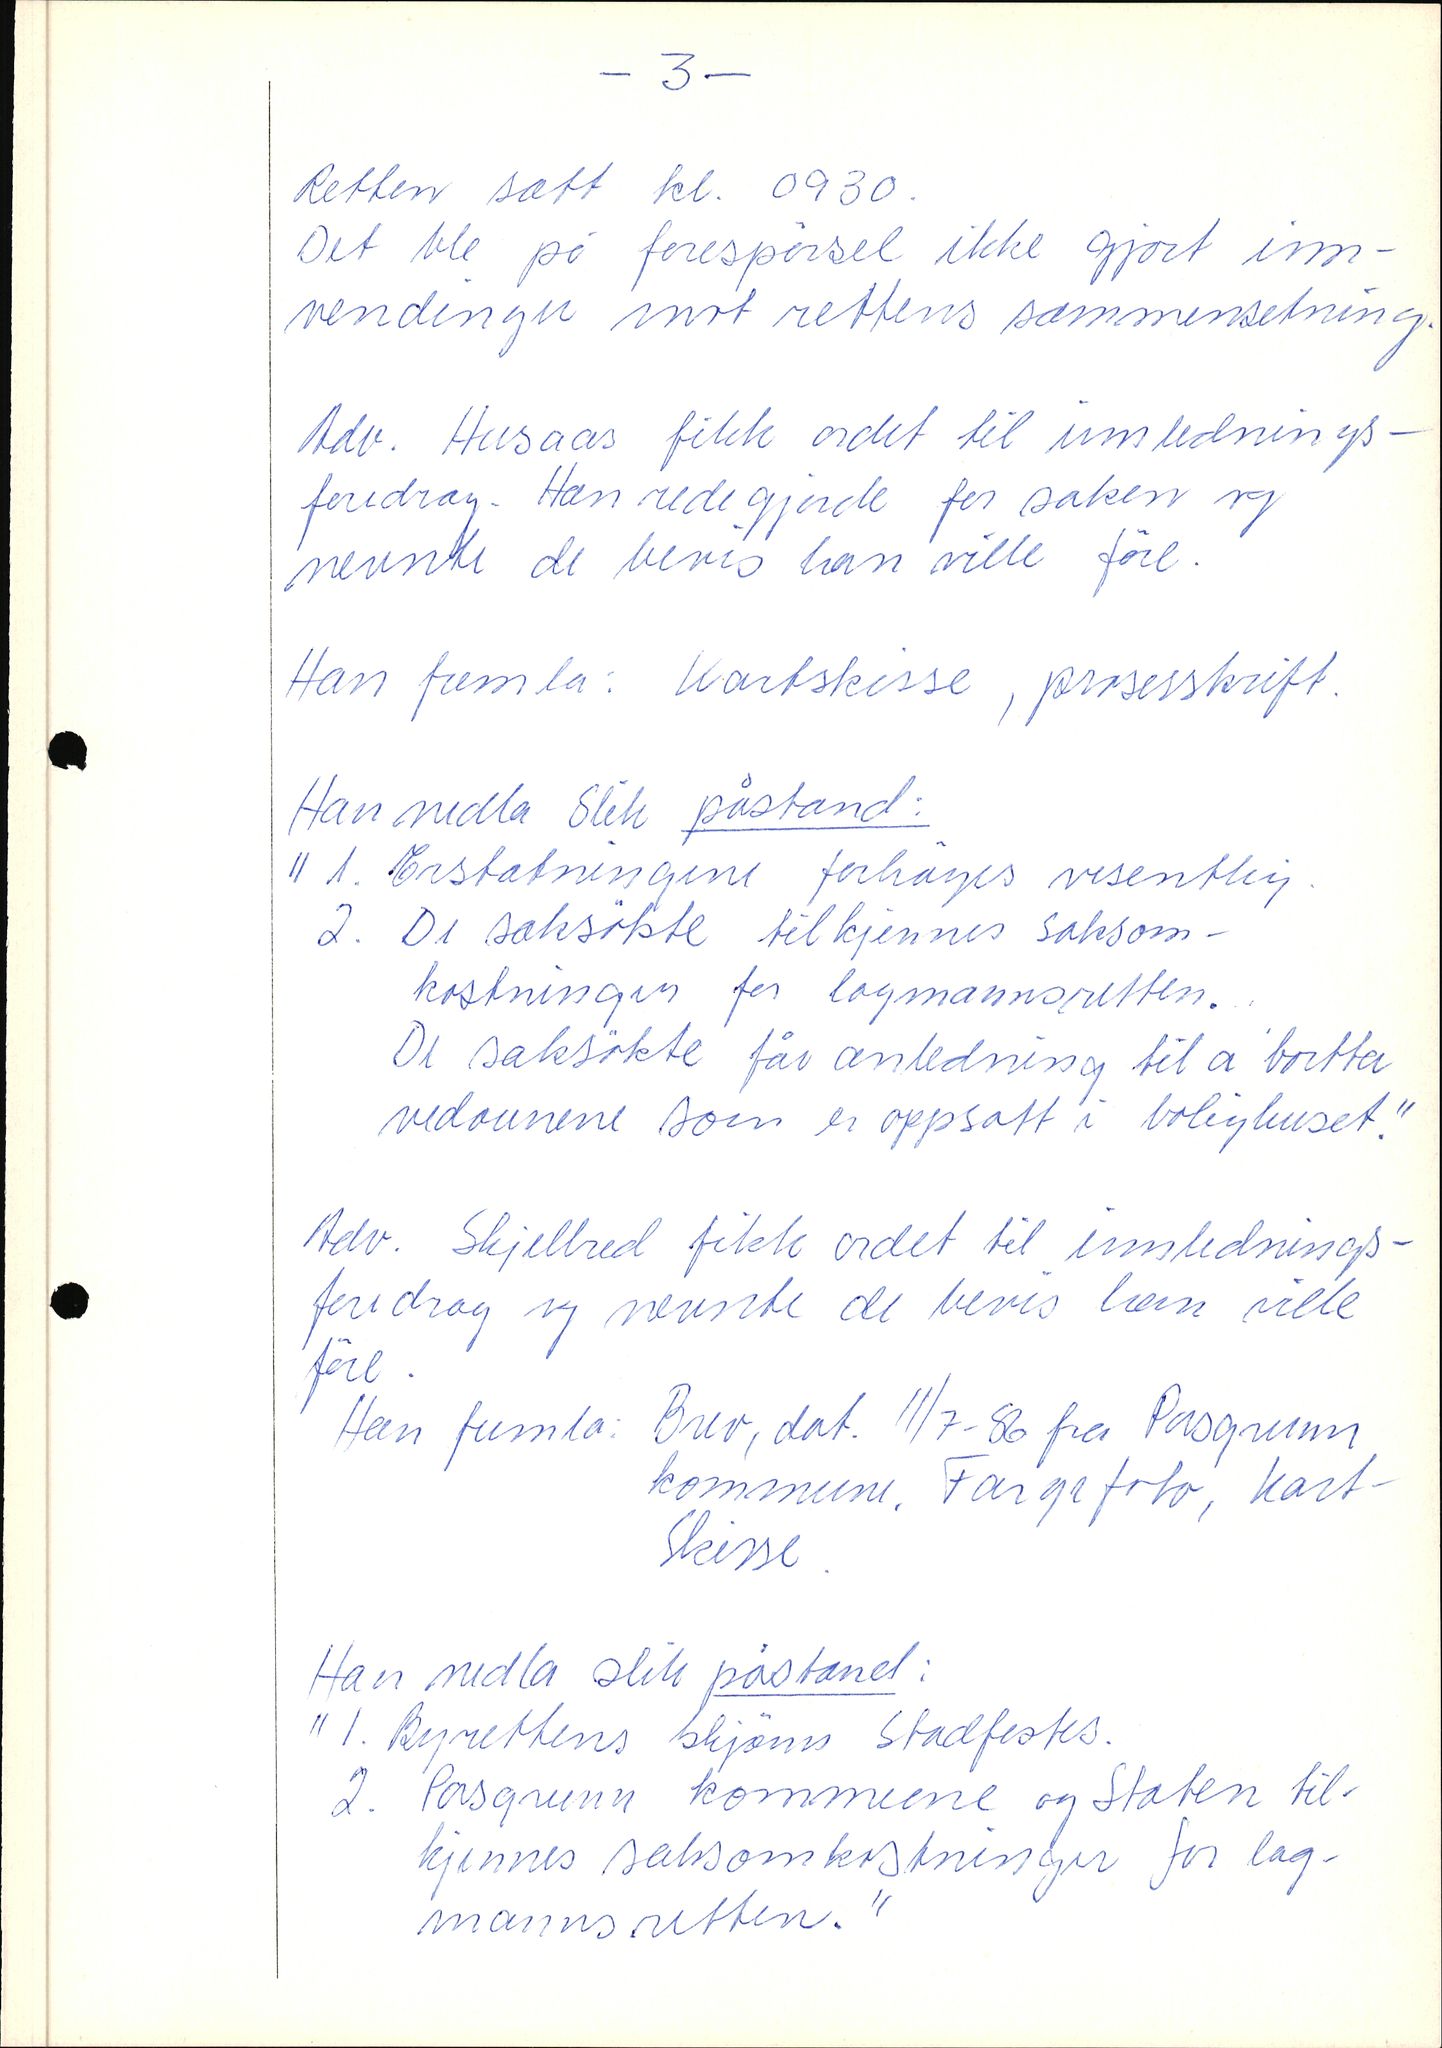 - 3 -
Retten satt kl. 0930.
Det ble på forespørsel ikke gjort inn-
vendinger mot rettens sammensetning.
Adv. Husaas fikk ordet til innlednings-
foredrag. Han redegjorde for saken og
nevnte de bevis han ville føre.
Han fremla: Kartskisse, prosesskrift.
Han nedla slik påstand:
" 1. Erstatningene forhøyes vesentlig.
2. De saksøkte tilkjennes saksom-
kostninger for lagmannsretten.
De saksøkte får anledning til å bortta
vedovnene som er oppsatt i bolighuset."
Adv. Skjelbred fikk ordet til innlednings-
foredrag og nevnte de bevis han ville
føre.
Han fremla: Brev, dat. 11/7-86 fra Porsgrunn
kommune. Fargefoto, Kart-
skisse.
Han nedla slik påstand:
" 1. Byrettens skjønn stadfestes.
2. Porsgrunn kommune og Staten til-
kjennes saksomkostninger for lag-
mannsretten."